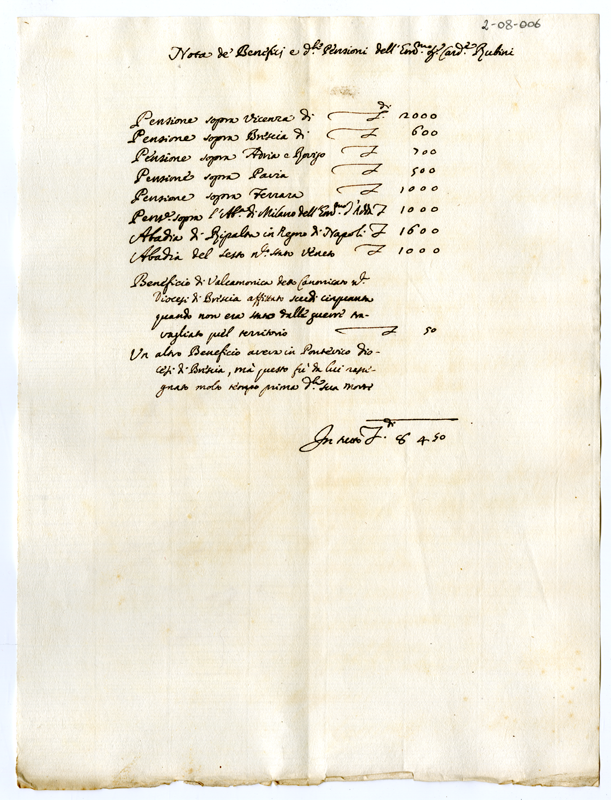 2-08-006
Nota de' Benefitj e d.lle Pensioni dell'Em.mo Sr. Card.e Rubini
di
Pensione sopra Vicenza di 2000
Pensione sopra Brescia di 600
Pensione sopra Adria e Rovigo 700
Pensione sopra Pavia 500
Pensione sopra Ferrara 1000
Pens.e sopra l'Ab.a di Milano dell'Em.mo 1000
Abadia di Ripalta in Regno di Napoli 1600
Abadia del Sesto n.o Stato Veneto 1000
Beneficio di Valcamonica detto Canonicato n.a
Diocesi di Brescia affittato scudi cinquanta
quando non era stato dalle guerre tra-
vagliato quel territorio 50
Un altro Beneficio aveva in Pontevico dio-
cesi di Brescia, mà questo fù da lui rasse-
gnato molto tempo prima d.lla sua morte
di
In tutto 8450